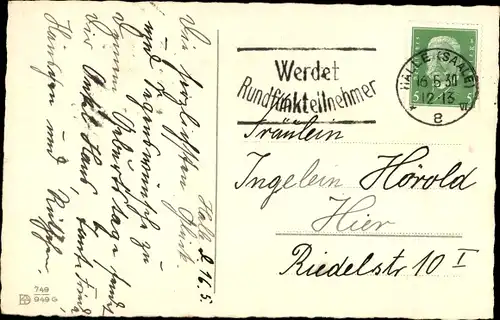 Halle d. 16.5.
Die herzlichsten Glück-
und Segenswünsche zu
Deinem Geburtstage sendet
Dir Onkel Hans, Tante Frieda
Hänschen und
Werdet
Rundfunkteilnehmer
HALLE (SAALE)
16.5.30
12-13
e
VI
5 5
Fräulein
Ingelein Hörold
Hier
Riedelstr 10 I
749
949 G